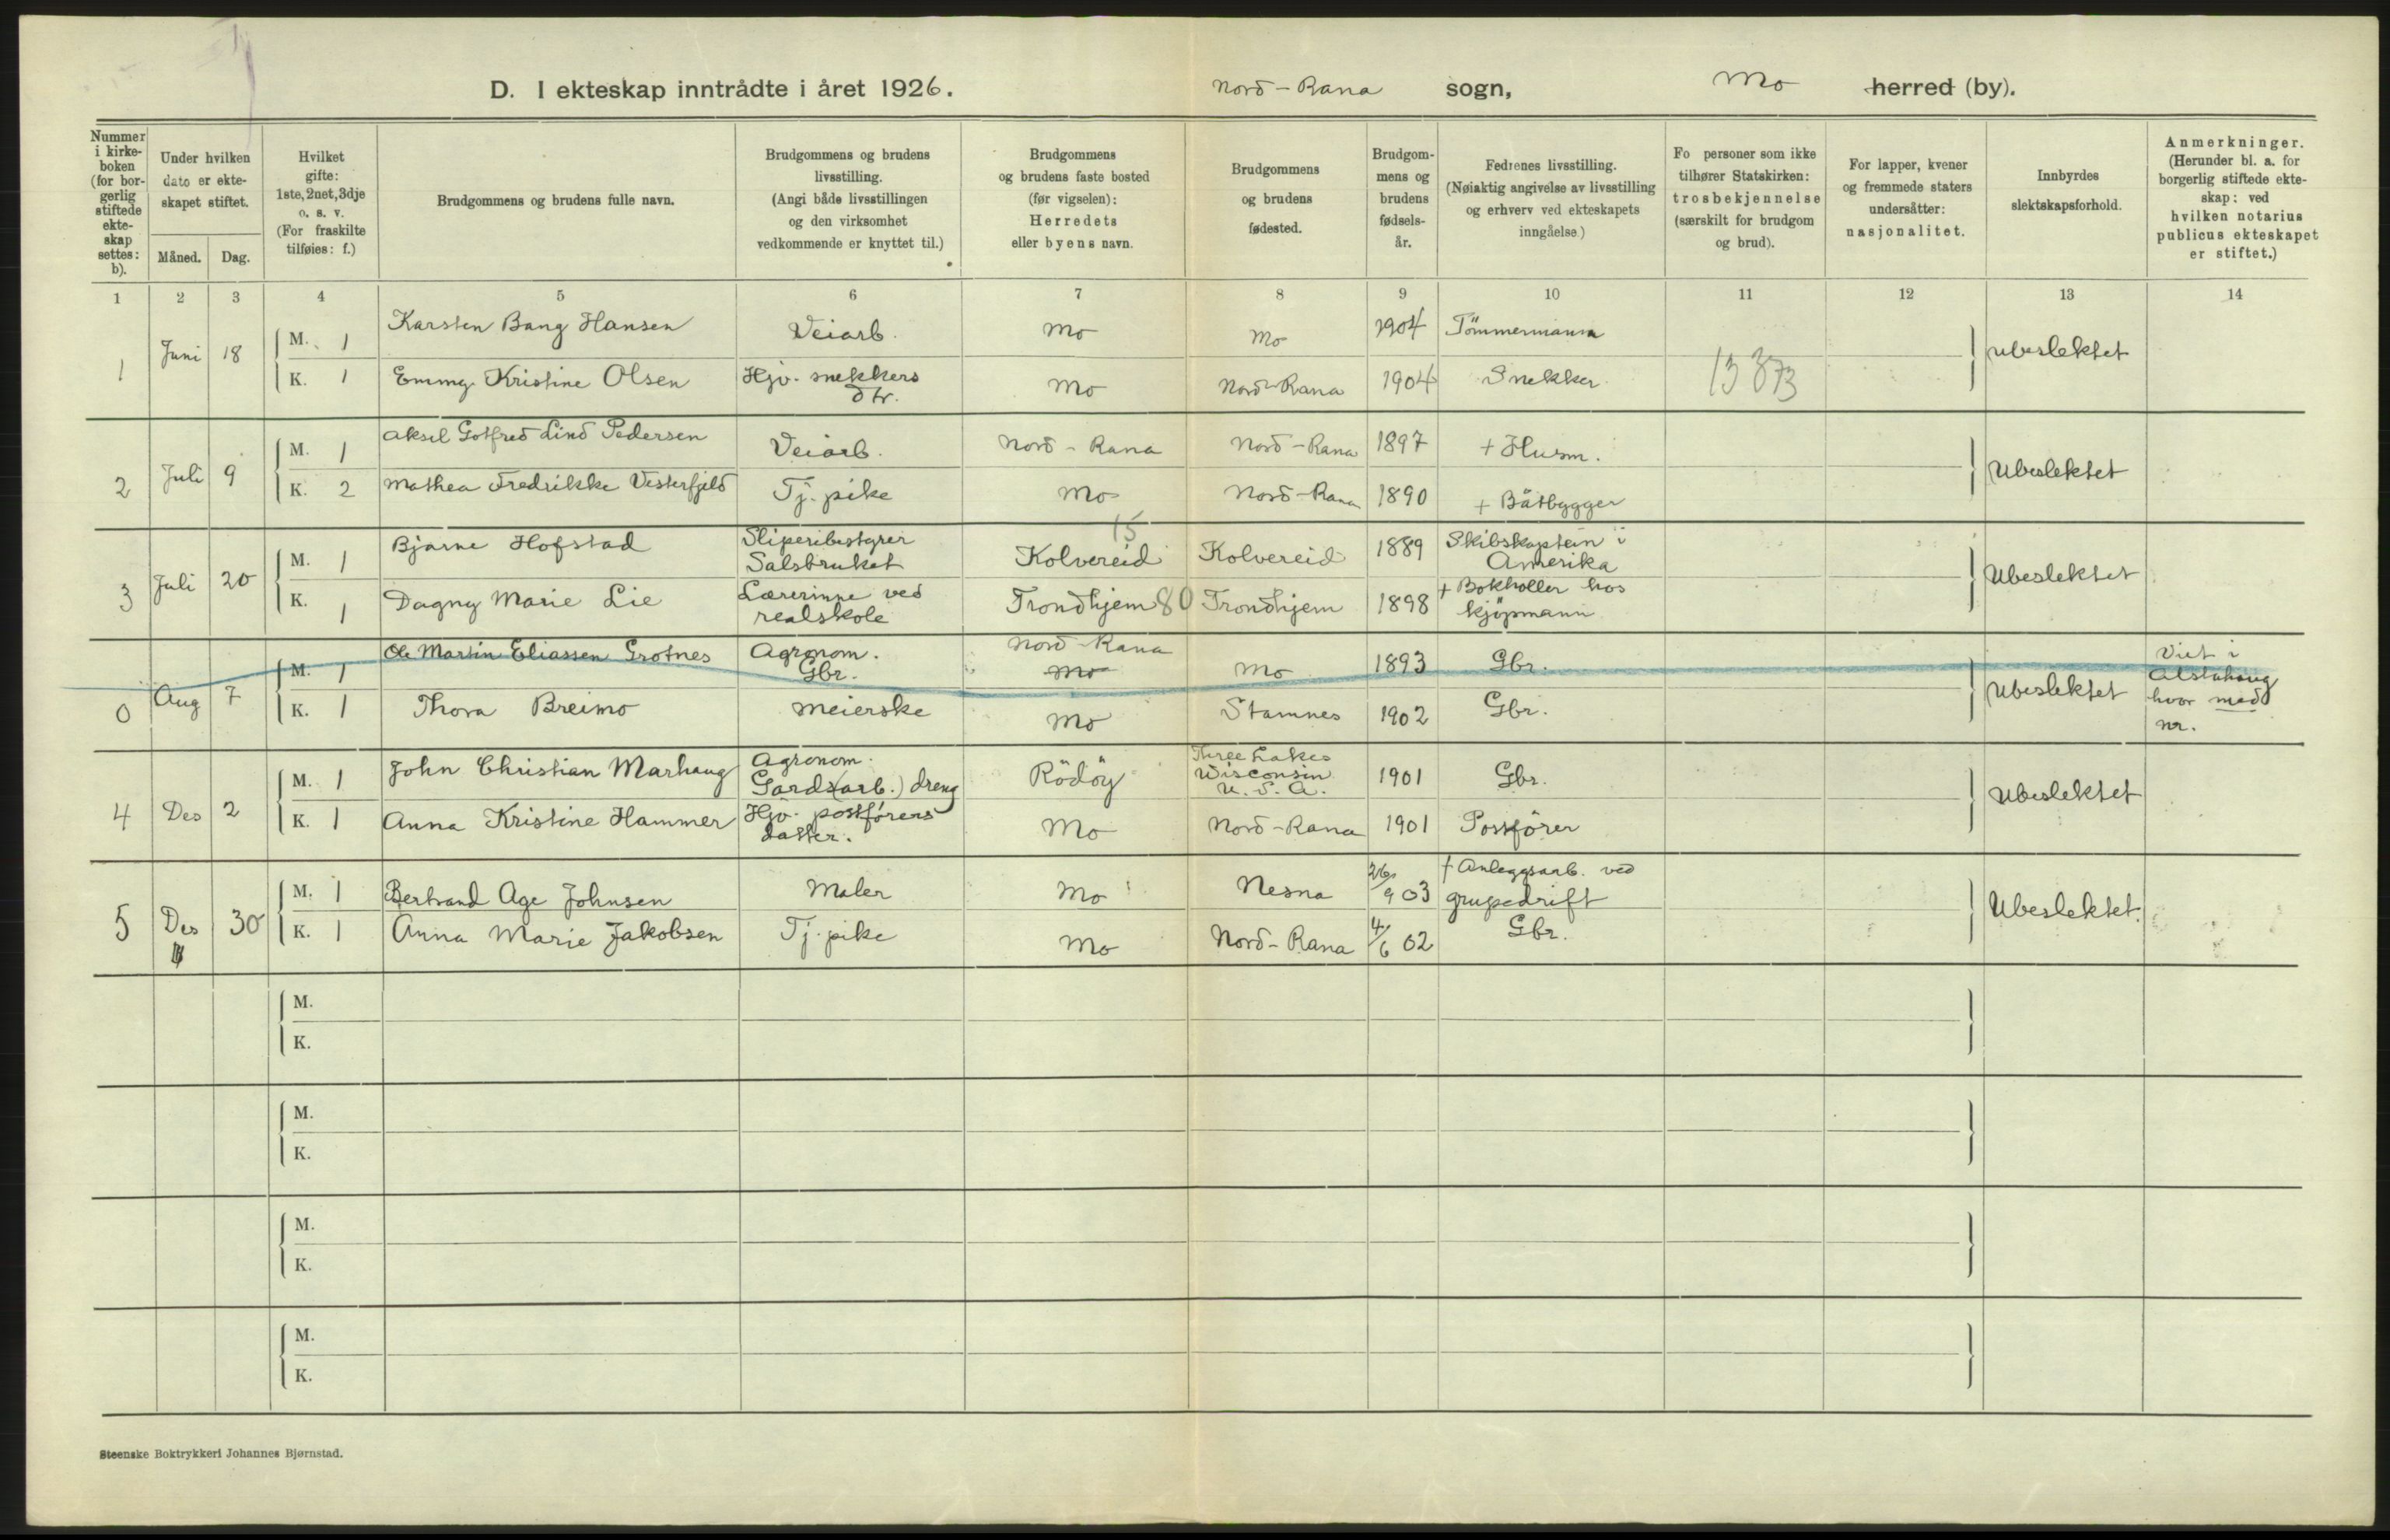 D. I ekteskap inntrådte i året 1926. Nord-Rana sogn, Mo herred (by).
Nummer i kirke-boken (for bor-gerlig stiftede ekte-skap settes: b).
Under hvilken dato er ekte-skapet stiftet.
Måned. Dag.
Hvilket gifte: 1ste, 2net, 3dje o. s. v. (For fraskilte tilføies: f.)
Brudgommens og brudens fulle navn.
Brudgommens og brudens livsstilling. (Angi både livsstillingen og den virksomhet vedkommende er knyttet til.)
Brudgommens og brudens faste bosted (før vigselen): Herredets eller byens navn.
Brudgommens og brudens fødested.
Brudgom-mens og brudens fødsels-år.
Fedrenes livsstilling. (Nøiaktig angivelse av livsstilling og erhverv ved ekteskapets inngåelse.)
Fo personer som ikke tilhører Statskirken: trosbekjennelse (særskilt for brudgom og brud).
For lapper, kvener og fremmede staters undersåtter: nasjonalitet.
Innbyrdes slektskapsforhold.
Anmerkninger. (Herunder bl. a. for borgerlig stiftede ekte-skap: ved hvilken notarius publicus ekteskapet er stiftet.)
1 2 3 4 5 6 7 8 9 10 11 12 13 14
1 Juni 18 M. 1 Karsten Bang Hansen Veiarb. Mo Mo 1904 Tömmermann Ubeslektet
K. 1 Emmy Kristine Olsen Hjv. snekkers dtr. Mo Nord-Rana 1904 Snekker 13873
2 Juli 9 M. 1 Aksel Gotfred Lind Pedersen Veiarb. Nord-Rana Nord-Rana 1897 + Husm. Ubeslektet
K. 2 Mathea Fredrikke Vesterfjeld Tj. pike Mo Nord-Rana 1890 + Båtbygger
3 Juli 20 M. 1 Bjarne Hofstad Sliperibestyrer Salsbruket 15 Kolvereid Kolvereid 1889 Skibskaptein i Amerika Ubeslektet
K. 1 Dagny Marie Lie Lærerinne ved realskole Trondhjem 80 Trondhjem 1898 + Bokholler hos kjøpmann
0 Aug 7 M. 1 Ole Martin Eliassen Grotnes Agronom. Gbr. Nord-Rana Mo Mo 1893 Gbr. Ubeslektet Viet i Alstahaug hvor med nr.
K. 1 Thora Breimo Meierske Mo Stamnes 1902 Gbr.
4 Des 2 M. 1 John Christian Marhaug Agronom. Gards(arb.) dreng Rödöy Three Lakes Wisconsin U. S. A. 1901 Gbr. Ubeslektet
K. 1 Anna Kristine Hammer Hjv. postförers datter. Mo Nord-Rana 1901 Postförer
5 Des 30 M. 1 Bertrand Age Johnsen Maler Mo Nesna 26/9 03 + Anleggsarb. ved grubedrift Ubeslektet.
K. 1 Anna Marie Jakobsen Tj. pike Mo Nord-Rana 4/6 02 Gbr.
M.
K.
M.
K.
M.
K.
M.
K.
Steenske Boktrykkeri Johannes Bjørnstad.